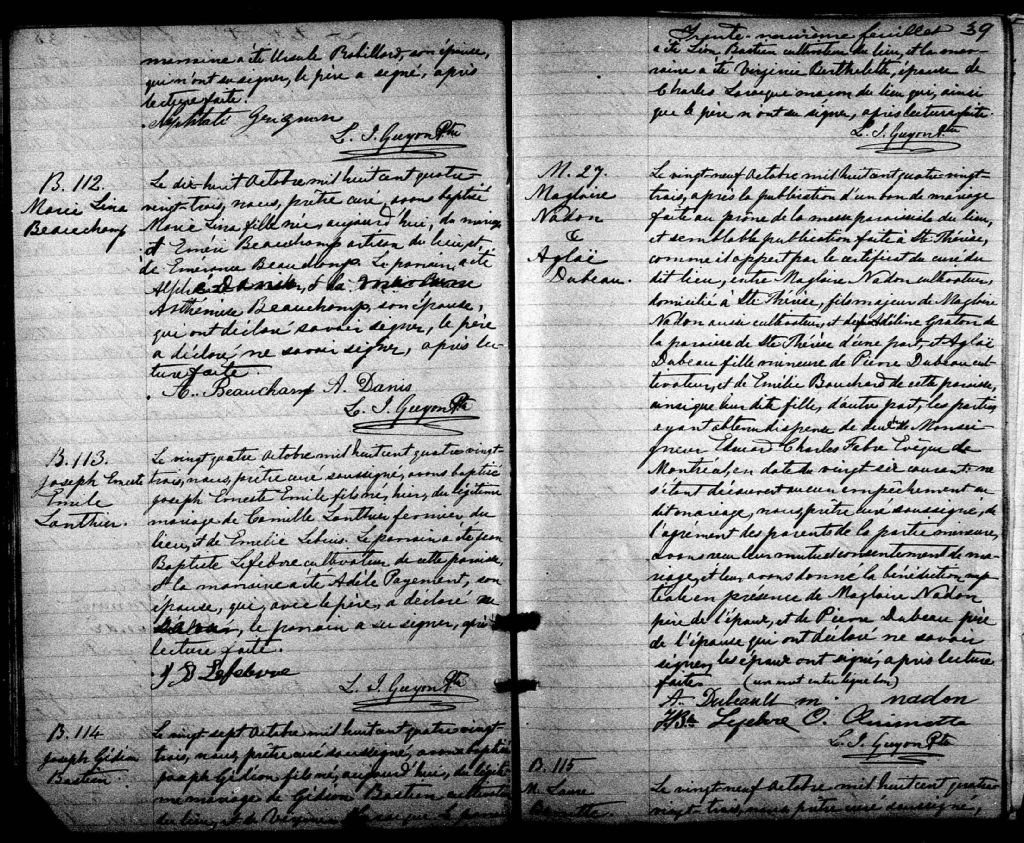 marraine a été Ursule Robillard, son épouse,
qui n'ont su signer, le père a signé, après
lecture faite.
Grignon
L. J. Guyon Ptre
B. 112.
Marie Lina
Beauchamp
Le dix huit Octobre mil huit cent quatre
vingt-trois, nous, prêtre curé, avons baptisé
Marie Lina fille née, aujourd'hui, du mariage
d'Eméri Beauchamp artisan du lieu, et
de Emérence Beauchamp. Le parrain a été
et la
Arthémise Beauchamp, son épouse,
qui ont déclaré savoir signer, le père
a déclaré ne savoir signer, après lec-
ture faite
A. Beauchamp A. Danis
L. J. Guyon Ptre
B. 113.
Joseph Erneste
Emile
Lanthier.
Le vingt quatre Octobre mil huit cent quatre vingt
trois, nous, prêtre curé soussigné, avons baptisé
Joseph Erneste Emile fils né, hier, du légitime
mariage de Camille Lanthier fermier du
lieu, et de Emélie Lebuis. Le parrain a été Jean
Baptiste Lefebvre cultivateur de cette paroisse,
et la marraine a été Adèle Payement, son
épouse, qui, avec le père, a déclaré ne
savoir, le parrain a su signer, après
lecture faite.
J B Lefebvre
L. J. Guyon Ptre
B. 114
Joseph Gédéon
Bastien.
Le vingt sept Octobre mil huit cent quatre vingt
trois, nous, prêtre curé soussigné, avons baptisé
Joseph Gédéon fils né, aujourd'hui, du légiti-
me mariage de Gédéon Bastien cultivateur
du lieu, et de Virginie Le parrain
Trente-neuvième feuillet 39
a été Léon Bastien cultivateur du lieu, et la mar-
raine a été Virginie Berthelette, épouse de
Charles Lavoque maçon du lieu qui, ainsi
que le père n'ont su signer, après lecture faite.
L. J. Guyon Ptre
M. 27.
Magloire
Nadon
&
Aglaë
Dubeau.
Le vingt neuf Octobre mil huit cent quatre vingt-
trois, après la publication d'un ban de mariage
faite au prône de la messe paroissiale du lieu,
et semblable publication faite à Ste Thérèse,
comme il appert par le certificat du curé du
dit lieu, entre Magloire Nadon cultivateur,
domicilié à Ste Thérèse, fils majeur de Magloire
Nadon aussi cultivateur, et de Adéline Graton de
la paroisse de Ste Thérèse d'une part, et Aglaë
Dubeau fille mineure de Pierre Dubeau cul-
tivateur, et de Emélie Bouchard de cette paroisse,
ainsi que leur dite fille, d'autre part, les parties
ayant obtenu dispense de deux de Monsei-
gneur Edouard Charles Fabre Evêque de
Montréal, en date du vingt six courant ne
s'étant découvert aucun empêchement au
dit mariage, nous prêtre curé soussigné, de
l'agrément des parents de la partie mineure,
avons reçu leur mutuel consentement de ma-
riage, et leur avons donné la bénédiction nup-
tiale en présence de Magloire Nadon
père de l'époux, et de Pierre Dubeau père
de l'épouse qui ont déclaré ne savoir
signer, les époux ont signé, après lecture
faite.
A. Dubeault m. nadon
Lefebvre O. Ouimette
L. J. Guyon Ptre
B. 115
M. Laure
Le vingt neuf Octobre mil huit cent quatre
vingt-trois, nous prêtre curé soussigné,